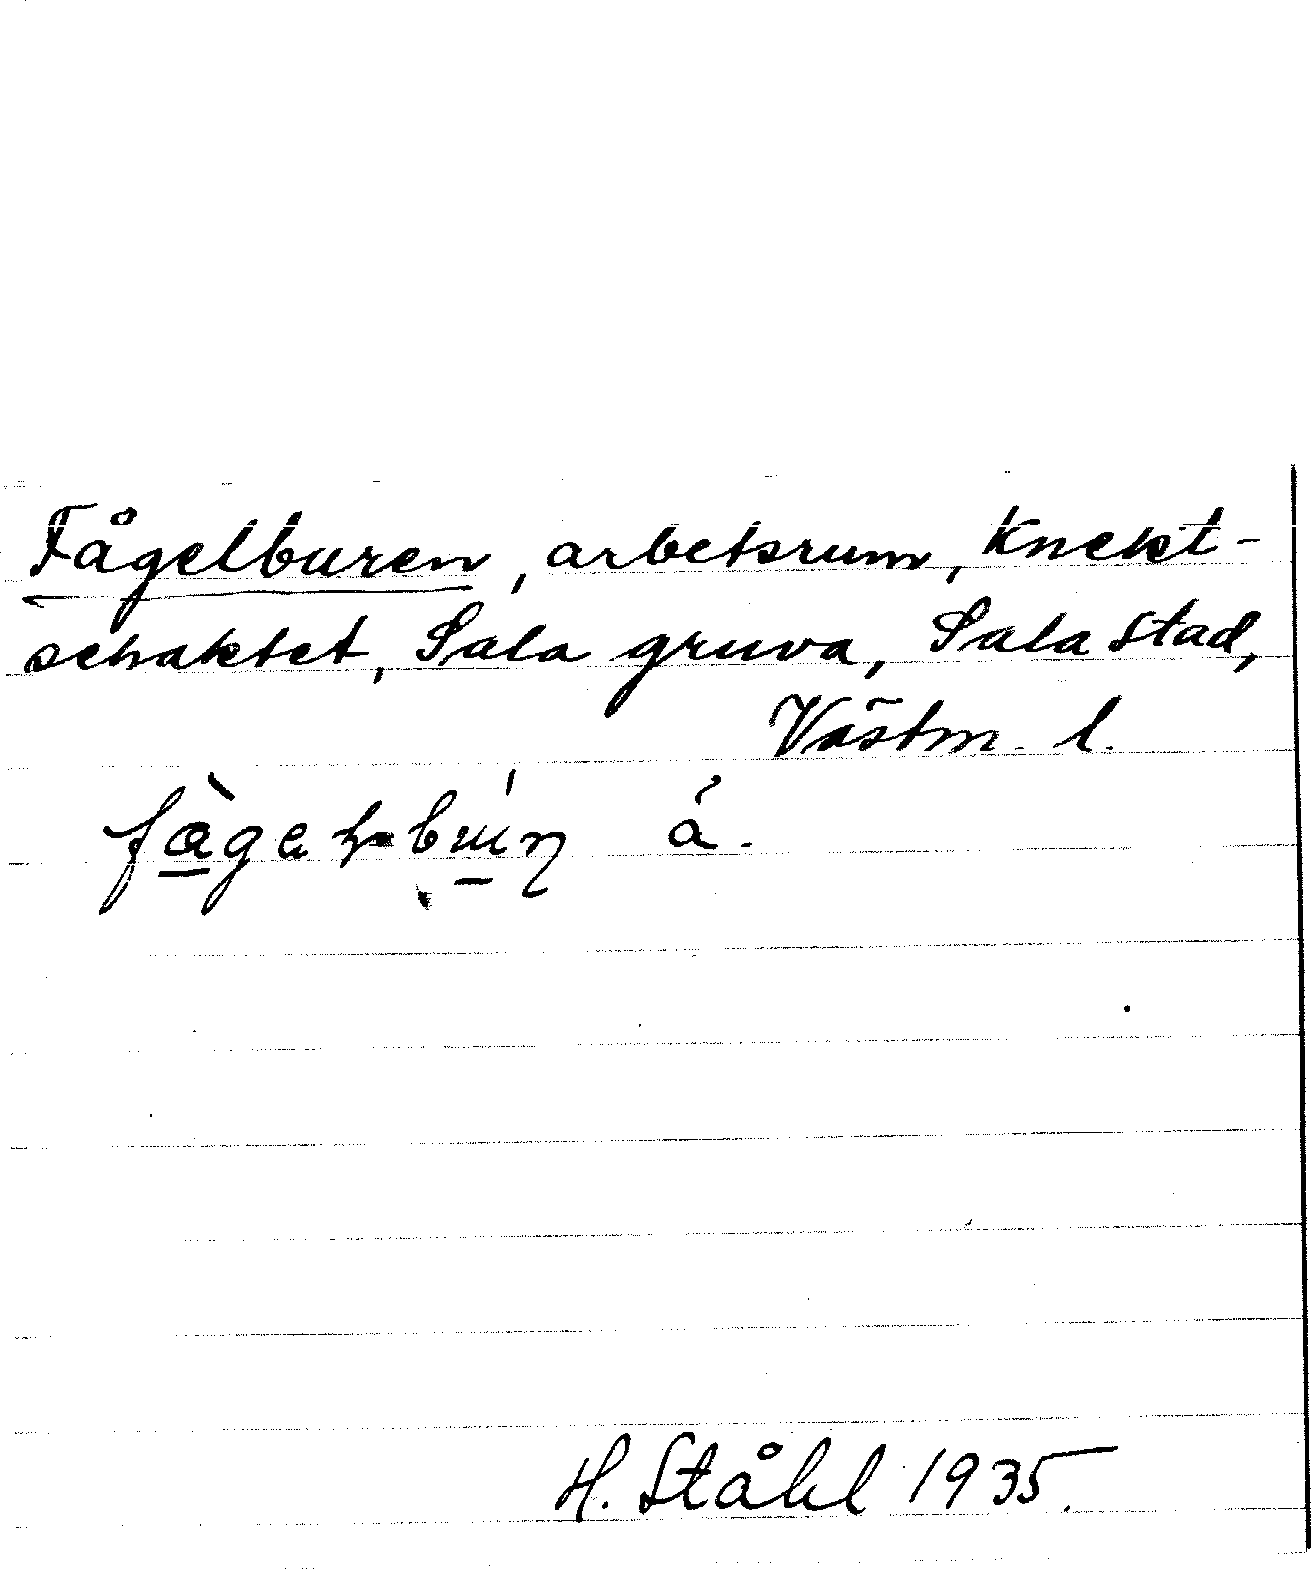 Fågelburen, arbetsrum, Knekt-
schaktet, Sala gruva, Sala stad,
Västm. l.
å.
H. Ståhl 1935.